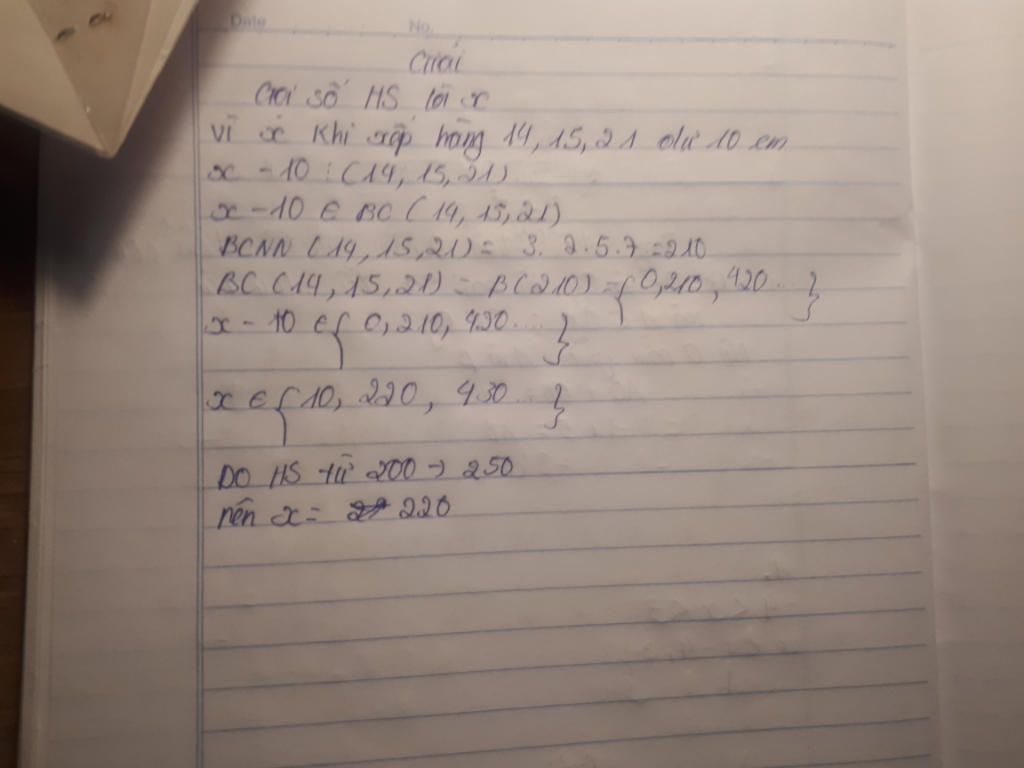 Date No.
Giải
Gọi số HS là x
vì x khi xếp hàng 14, 15, 21 dư 10 em
x - 10 ⋮ (14, 15, 21)
x - 10 ∈ BC (14, 15, 21)
BCNN (14, 15, 21) = 3. 2. 5. 7 = 210
BC (14, 15, 21) = B(210) = { 0, 210, 420... }
x - 10 ∈ { 0, 210, 420.... }
x ∈ { 10, 220, 430... }
DO HS từ 200 → 250
nên x = 220